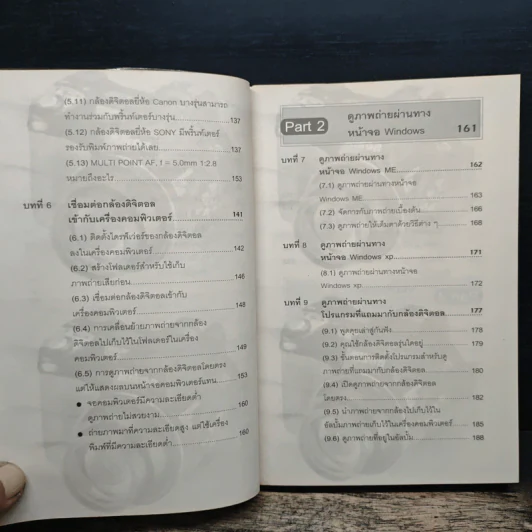 (5.11) กล้องดิจิตอลยี่ห้อ Canon บางรุ่นสามารถ
ทำงานร่วมกับพริ้นท์เตอร์บางรุ่น 137
(5.12) กล้องดิจิตอลยี่ห้อ SONY มีพริ้นท์เตอร์
รองรับพิมพ์ภาพถ่ายได้เลย 137
(5.13) MULTI POINT AF, f = 5.0mm 1:2.8
หมายถึงอะไร 153
บทที่ 6 เชื่อมต่อกล้องดิจิตอล
เข้ากับเครื่องคอมพิวเตอร์ 141
(6.1) ติดตั้งไดรฟ์เวอร์ของกล้องดิจิตอล
ลงในเครื่องคอมพิวเตอร์ 142
(6.2) สร้างโฟลเดอร์สำหรับใช้เก็บ
ภาพถ่ายเสียก่อน 146
(6.3) เชื่อมต่อกล้องดิจิตอลเข้ากับ
เครื่องคอมพิวเตอร์ 148
(6.4) การเคลื่อนย้ายภาพถ่ายจากกล้อง
ดิจิตอลไปเก็บไว้ในโฟลเดอร์ในเครื่อง
คอมพิวเตอร์ 149
(6.5) การดูภาพถ่ายจากกล้องดิจิตอลโดยตรง
แต่ให้แสดงผลบนหน้าจอคอมพิวเตอร์แทน 153
● จอคอมพิวเตอร์มีความละเอียดต่ำ
ดูภาพถ่ายไม่สวยงาม 160
● ถ่ายภาพมาที่ความละเอียดสูง แต่ใช้เครื่อง
พิมพ์ที่มีความละเอียดต่ำ 160
Part 2 ดูภาพถ่ายผ่านทาง
หน้าจอ Windows 161
บทที่ 7 ดูภาพถ่ายผ่านทาง
หน้าจอ Windows ME 162
(7.1) ดูภาพถ่ายผ่านทางหน้าจอ
Windows ME 163
(7.2) จัดการกับภาพถ่ายเบื้องต้น 166
(7.3) ดูภาพถ่ายให้เต็มตาด้วยวิธีต่าง ๆ 168
บทที่ 8 ดูภาพถ่ายผ่านทาง
หน้าจอ Windows xp 171
(8.1) ดูภาพถ่ายผ่านทางหน้าจอ
Windows xp 172
บทที่ 9 ดูภาพถ่ายผ่านทาง
โปรแกรมที่แถมมากับกล้องดิจิตอล 177
(9.1) พูดคุยเล่าสู่กันฟัง 178
(9.2) คุณใช้กล้องดิจิตอลรุ่นใดอยู่ 179
(9.3) ขั้นตอนการติดตั้งโปรแกรมสำหรับดู
ภาพถ่ายที่แถมมากับกล้องดิจิตอล 180
(9.4) เปิดดูภาพถ่ายจากกล้องดิจิตอล
โดยตรง 182
(9.5) นำภาพถ่ายจากกล้องไปเก็บไว้ใน
อัลบั้มภาพถ่ายเก็บไว้ในเครื่องคอมพิวเตอร์ 185
(9.6) ดูภาพถ่ายที่อยู่ในอัลบั้ม 188